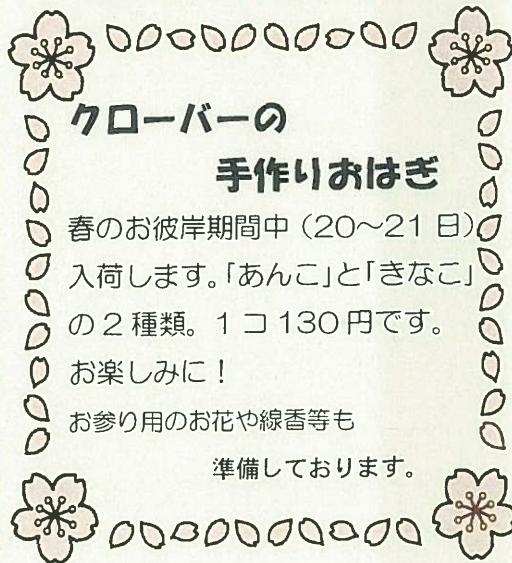 クローバーの
手作りおはぎ
春のお彼岸期間中（20～21 日）
入荷します。「あんこ」と「きなこ」
の２種類。１コ 130 円です。
お楽しみに！
お参り用のお花や線香等も
準備しております。